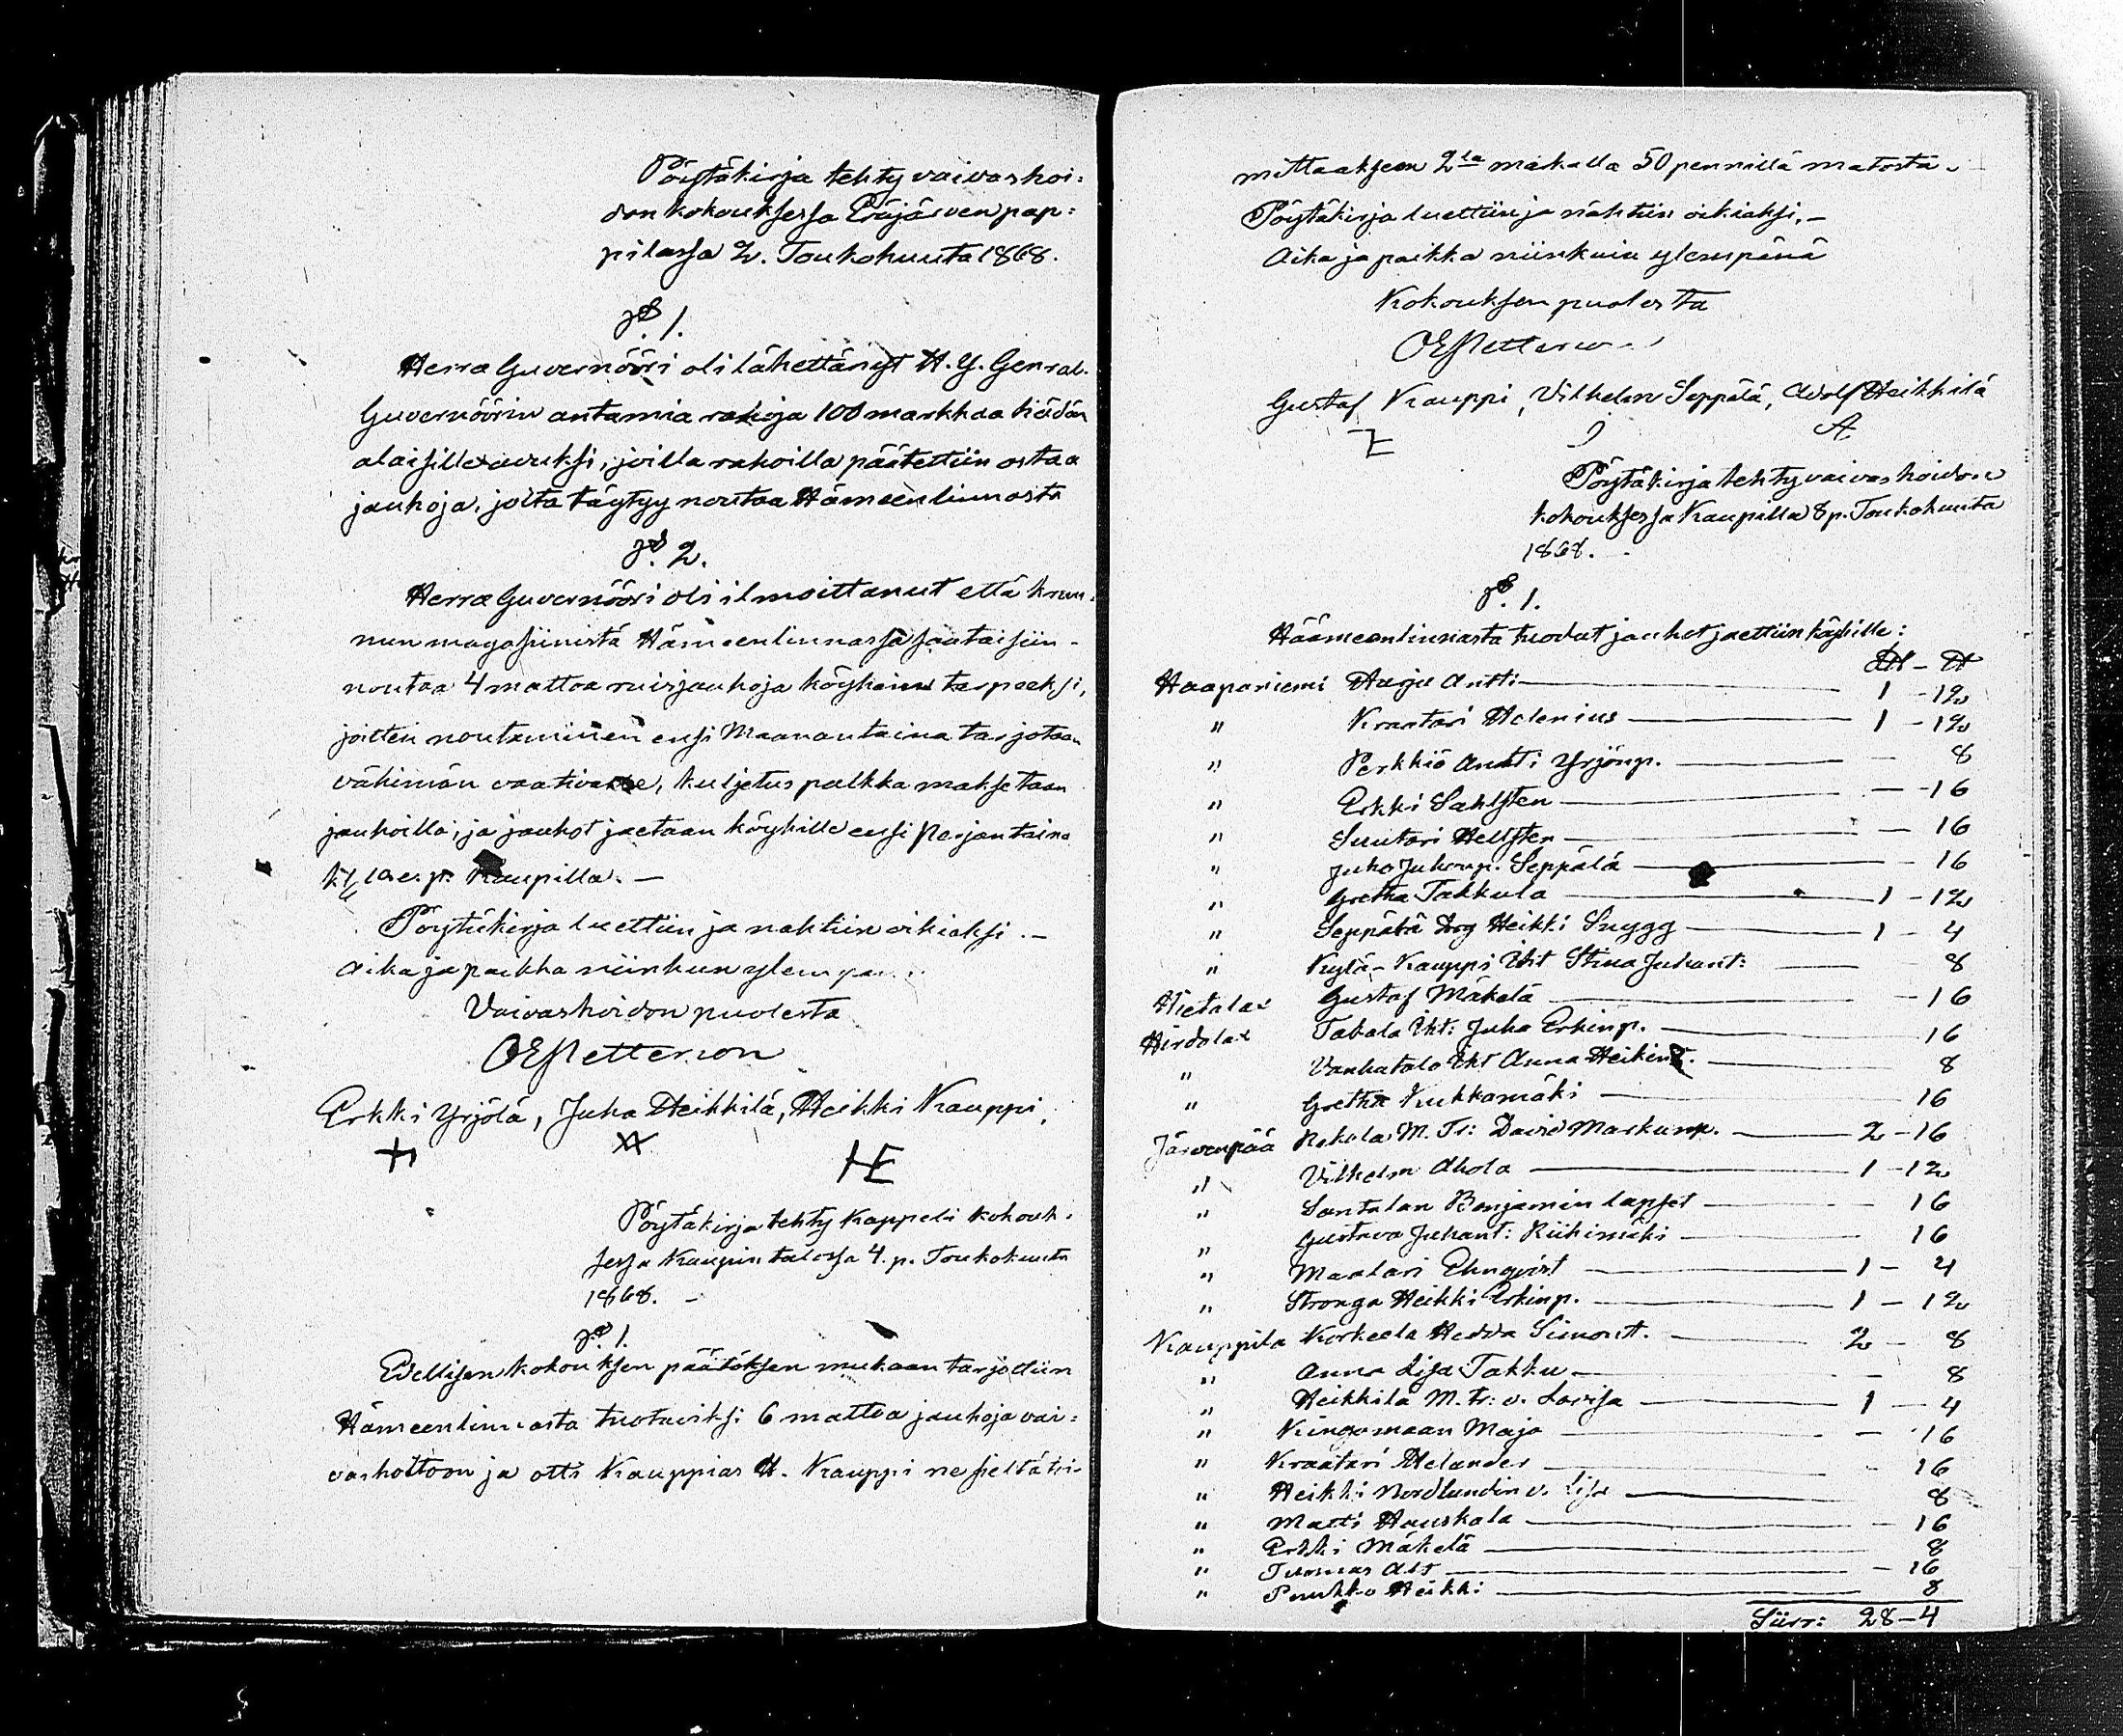 Pöytäkirja tehty vaivashoi:
don kokouksessa Eräjärven pap:
pilassa 2. Toukokuuta 1868.
§. 1.
Herra Guvernööri oli lähettänyt H. Y. Genral.
Guvernöörin antamia rahoja 100 markkaa hädän
alaisille avuksi, joilla rahoilla päätettiin ostaa
jauhoja, joita täytyy noutaa Hämeenlinnasta
§. 2.
Herra Guvernööri oli ilmoittanut että kruu-
nun magasiinista Hämeenlinnassa saataisiin
noutaa 4 mattoa ruisjauhoja köyhäin tarpeeksi,
joitten noutaminen ensi Maanantaina tarjotaan
vähimän vaativalle, kuljetus palkka maksetaan
jauhoilla, ja jauhot jaetaan köyhille ensi Perjantaina
k:lo e.p. Kaupilla. —
Pöytäkirja luettiin ja nähtiin oikiaksi. —
Aika ja paikka niinkun ylempänä
Vaivashoidon puolesta
OE Petterson
Erkki Yrjölä, Juha Heikkilä, Heikki Kauppi,
HE
Pöytäkirja tehty Kappeli kokouk-
sessa Kaupin talossa 4. p. Toukokuuta
1868. —
§. 1.
Edellisen kokouksen päätöksen mukaan tarjottiin
Hämeenlinnasta tuotaviksi 6 mattoa jauhoja vai:
vashoitoon ja otti Kauppias H. Kauppi ne sieltä toi-
mittaaksen 2la markalla 50 pennillä matosta. —
Pöytäkirja luettiin ja nähtiin oikiaksi. —
Aika ja paikka niinkuin ylempänä
Kokouksen puolesta
OE Petterson
Gustaf Kauppi, Vilhelm Seppälä, Adolf Heikkilä
A
Pöytäkirja tehty vaivashoidon
kokouksessa Kaupilla 8 p. Toukokuuta
1868. —
§. 1.
Häämeenlinnasta tuodut jauhot jaettiin köyhille:
Haapaniemi Harju Antti — 1 - 12
" Kraatari Helenius — 1 - 12
" Perkkiö Antti Yrjönp. — 8
" Erkki Sahlsten — 16
" Suutari Hellsten — 16
" Juho Juhonp. Seppälä — 16
" Gretha Takkula — 1 - 12
" Seppälä Drg Heikki Snygg — 1 - 4
" Kylä-Kauppi Iht Stina Juhant: — 8
Hietalax Gustaf Mäkelä — 16
Hirdolax Tabala Iht: Juha Erkinp. — 16
" Vanhatalo Iht Anna Heikint. — 8
" Gretha Kukkomäki — 16
Järvenpää Rekola M. Tr: David Markunp. — 2 - 16
" Vilhelm Ahola — 1 - 12
" Santalan Benjamin lapset — 16
" Gustava Juhant: Riihimäki — 16
" Maalari Ehnqvist — 1 - 4
" Stronga Heikki Erkinp. — 1 - 12
Kauppila Korkeela Hedda Simont. — 2 - 8
" Anna Lisa Takku — 8
" Heikkilä M. tr: v. Lovisa — 1 - 4
" Kingomaan Maja — 16
" Kraatari Helander — 16
" Heikki Nordlundin v. Lisa — 8
" Matti Hauskala — 16
" Erkki Mäkelä — 8
" Tuomas Alt — 16
" Puukko Heikki — 8
Siirr: 28 - 4